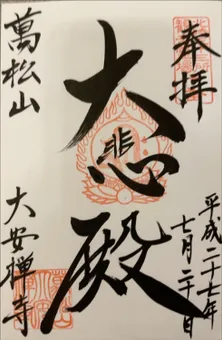 奉拝
平成二十七年
七月二十日
大悲殿
萬松山
大安禅寺